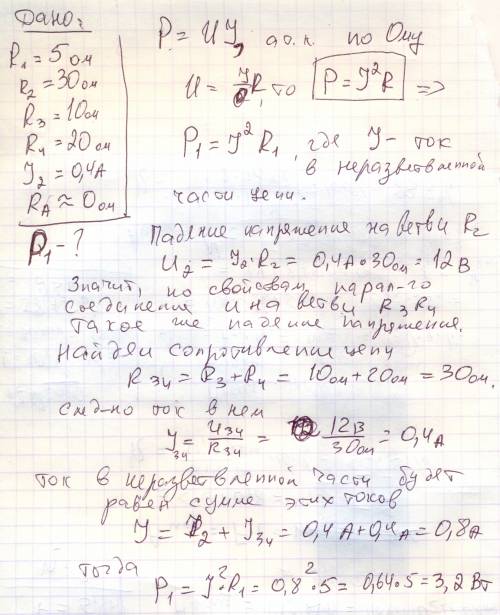 Дано:
R1 = 5 ом
R2 = 30 ом
R3 = 10 ом
R4 = 20 ом
J2 = 0,4 А
RA ≈ 0 ом
P1 - ?
P = UJ, а т.к. по Ому
U = JR, то P = J²R =>
P1 = J²R1, где J - ток
в неразветвленной
части цепи.
Падение напряжение на ветви R2
U2 = J2·R2 = 0,4А·30ом = 12В
Значит, по свойствам парал-го
соединения и на ветви R3R4
такое же падение напряжения.
Найдём сопротивление цепи
R34 = R3 + R4 = 10ом + 20ом = 30ом.
след-но ток в нем
J34 = U34/R34 = 12В/30ом = 0,4А
ток в неразветвленной части будет
равен сумме этих токов
J = J2 + J34 = 0,4А + 0,4А = 0,8А
тогда
P1 = J²·R1 = 0,8²·5 = 0,64·5 = 3,2 Вт